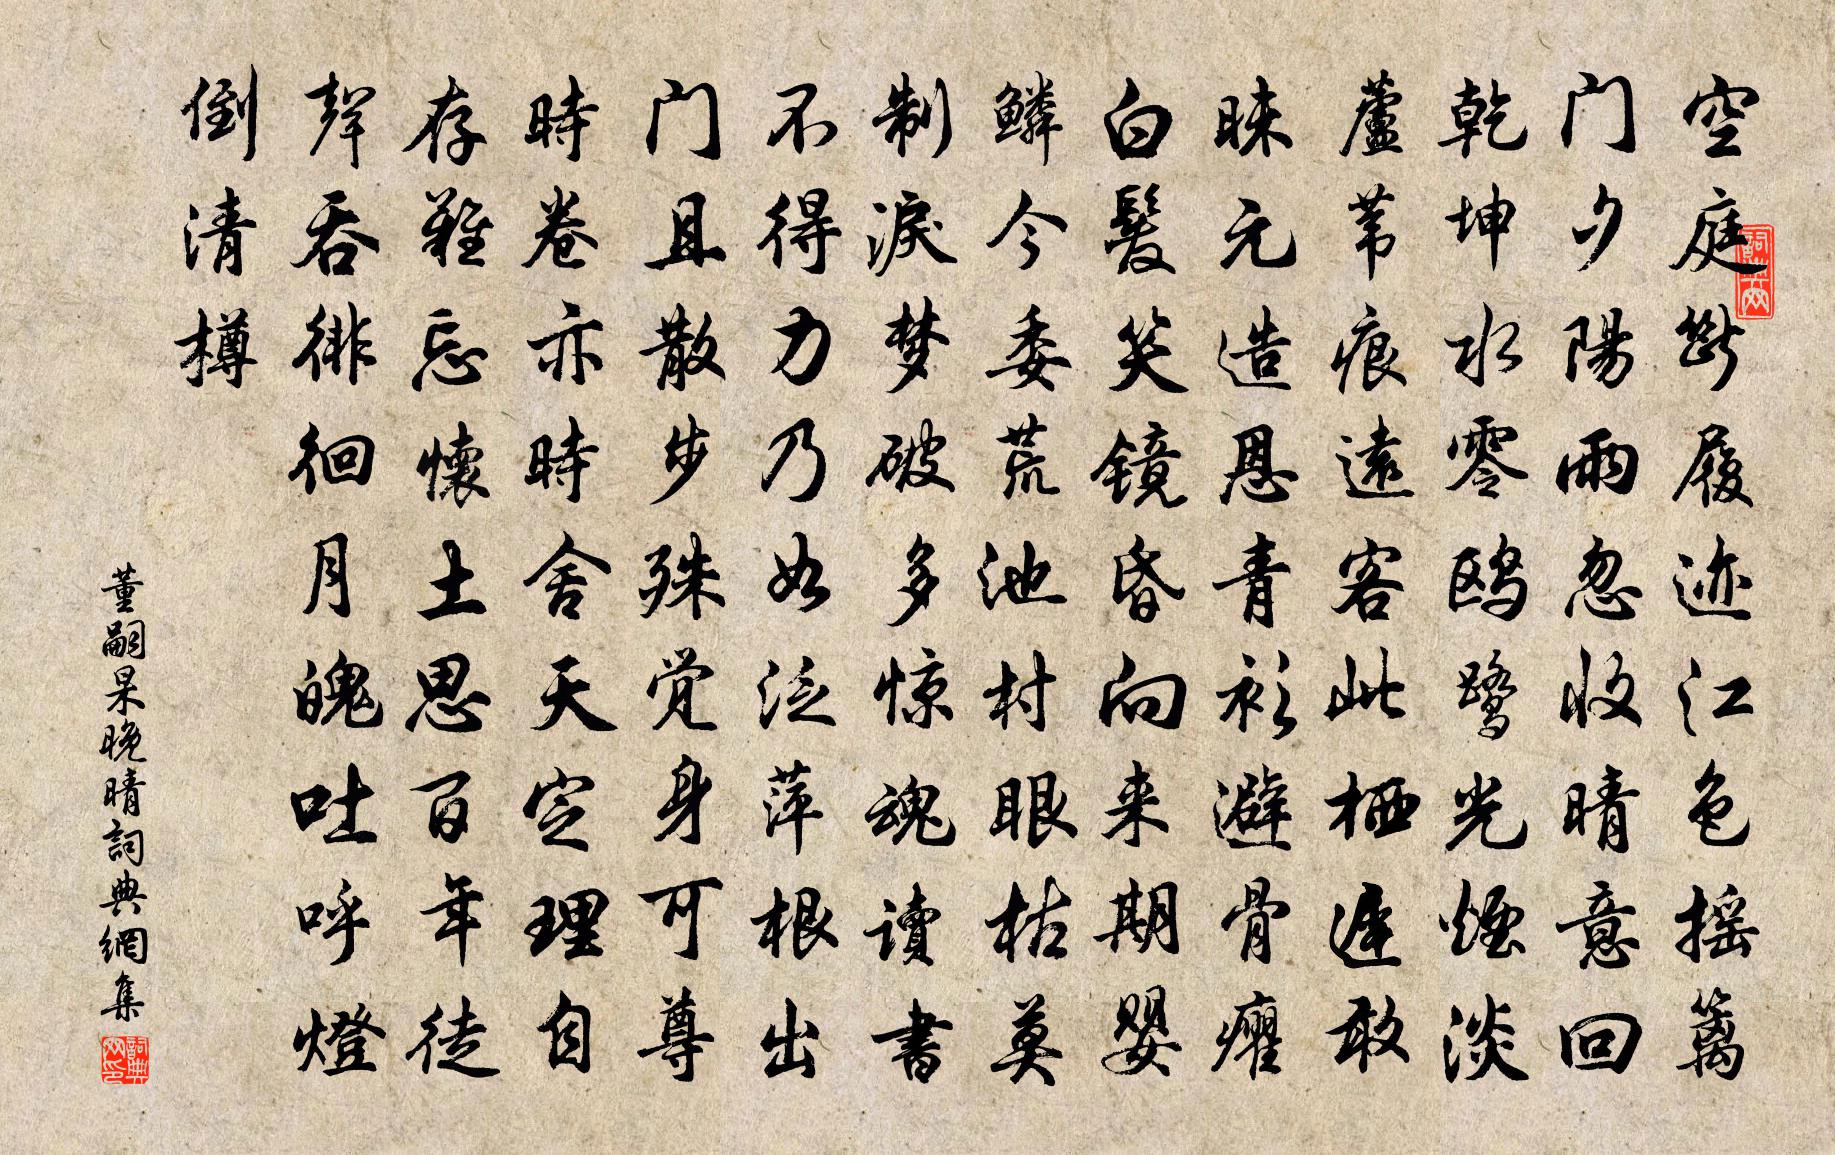 空庭斷履迹江色摇篱
门夕陽雨忽收晴意回
乾坤水零鸥鹭光煙淡
蘆苇痕遠客此栖遲敢
昧元造恩青衫避骨癯
白髮笑镜昏向来期婴
鳞今委荒池村眼枯莫
制淚梦破多惊魂读書
不得力乃如泛萍根出
门且散步殊觉身可尊
時卷亦時舍天定理自
存難忘懷土思百年徒
聲吞徘徊月魄吐呼燈
倒清樽
董嗣杲晚晴詞典網集
詞典网
詞典网印